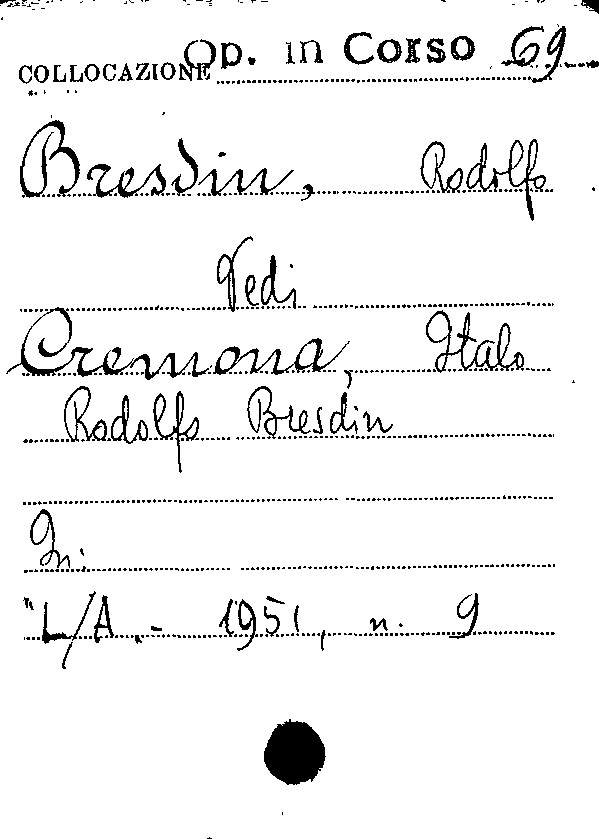 COLLOCAZIONE Op. in Corso 69
Bresdin, Rodolfo
Vedi
Cremona, Italo
Rodolfo Bresdin
In:
"L/A".- 1951, n. 9